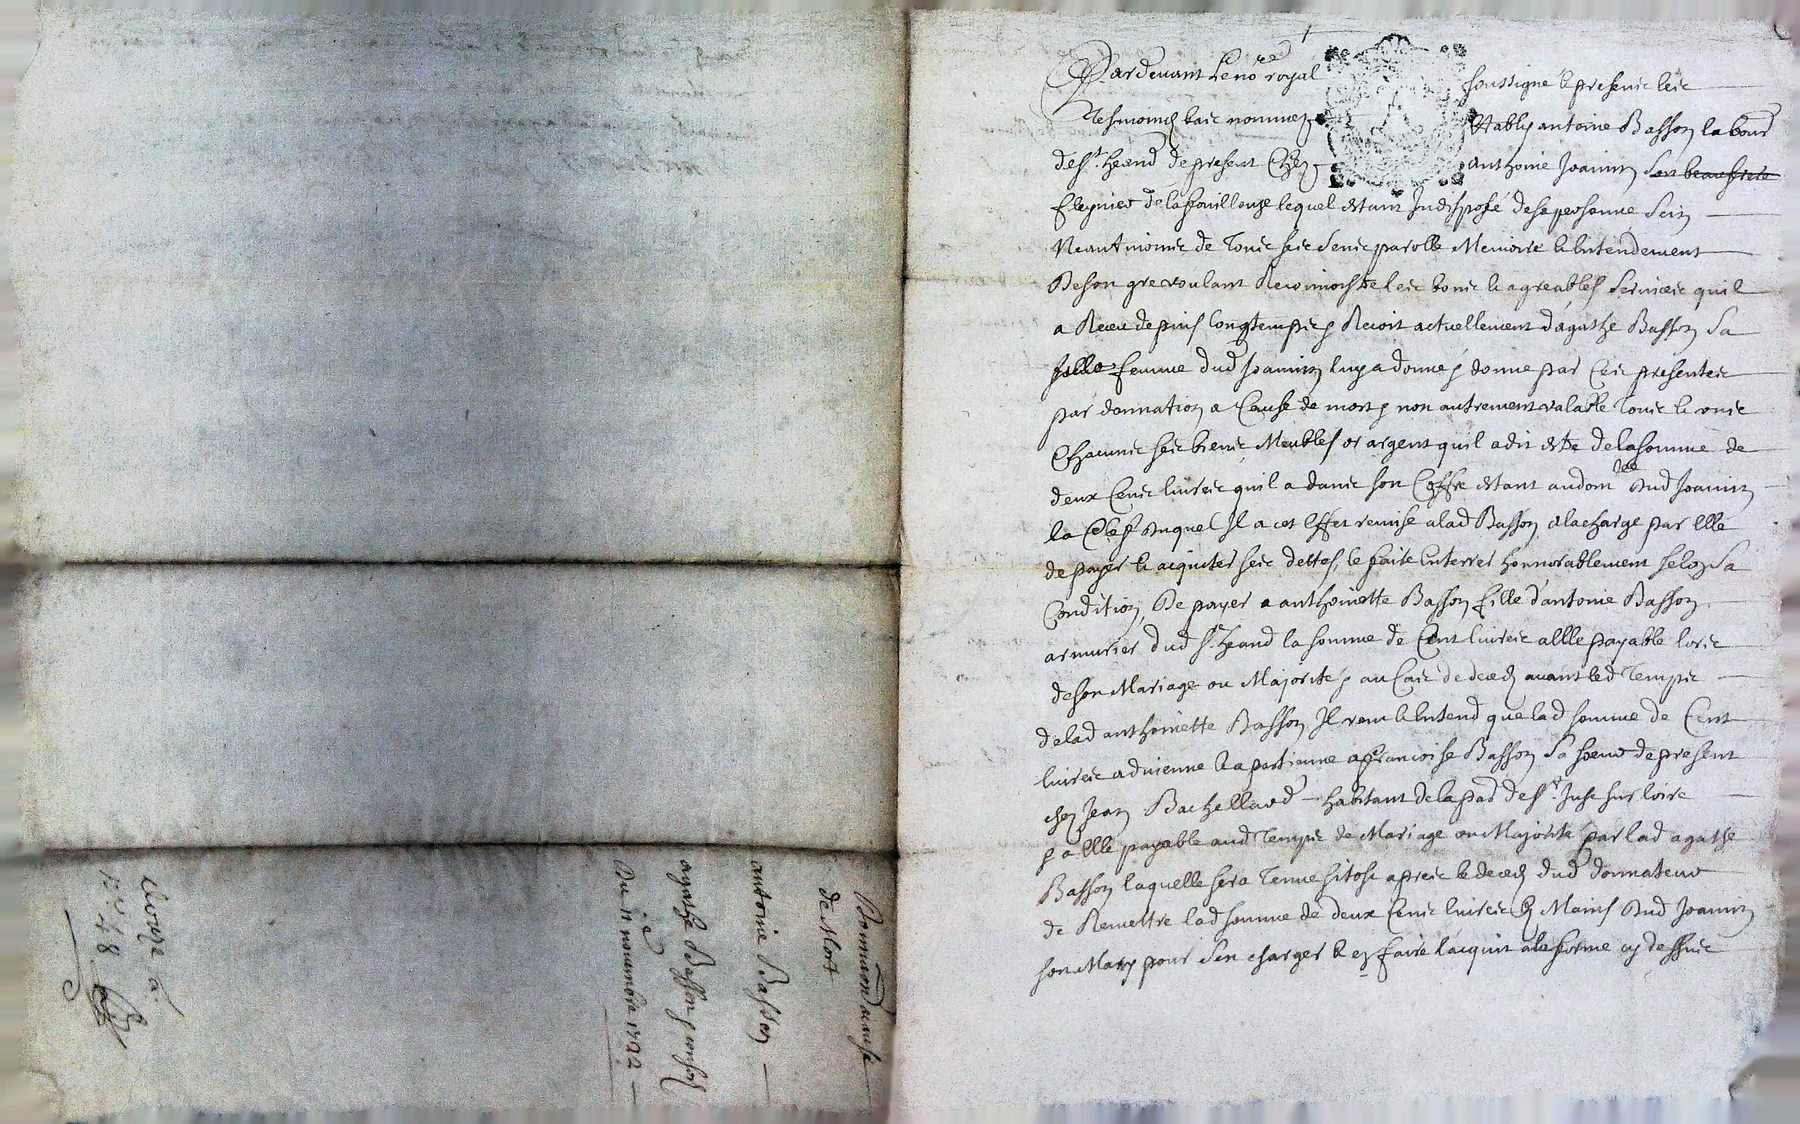 Pardevant le no.re royal soussigne & presents les
tesmoins bas nommez Estably antoine Basson labour
de st. heand de present chez anthoine Joannin son beaufrere
fleynier de la fouillouze lequel estant Indisposé de sa personne sein
Neantmoins de tous ses sens parolle Memoire & Entendement
De son gre voulant Reconnoistre les bons & agreables services quil
a Receu depuis longtemps & Recoit actuellement d'agathe Basson sa
fille femme dud Joannin luy a donné & donne par ces presentes
par donnation a Cause de mort & non autrement valable tous & uns
Chacuns ses biens Meubles or argent quil a dit estre de la somme de
deux Cens livres quil a dans son Coffre estant au dom.lle dud Joannin
la Clef duquel Il a cet Effet remise a lad Basson a la charge par Elle
de payer & acquiter ses dettes, le faire Enterrer honnorablement selon sa
Condition, De payer a anthoinette Basson fille d'antoine Basson
armurier dud st. heand la somme de Cent livres a Elle payable lors
de son Mariage ou Majorité & au Cas de deceds avant led temps
de lad anthoinette Basson Il veut & Entend que lad somme de Cent
livres advienne & apartienne a francoise Basson sa soeur de present
chez Jean Bachellard habitant de la par de st. Just sur loire
& a Elle payable aud temps de Mariage ou Majorité par lad agathe
Basson laquelle sera tenue sitost apres le deceds dud donnateur
de Remettre lad somme de deux Cens livres Es Mains dud Joannin
son Mary pour s'en charger & en faire l'acquit a la forme cy dessus
Donnaon a cause
de Mort
antoine Basson
agathe Basson & consors
Du 11e novembre 1722
Cotte a.